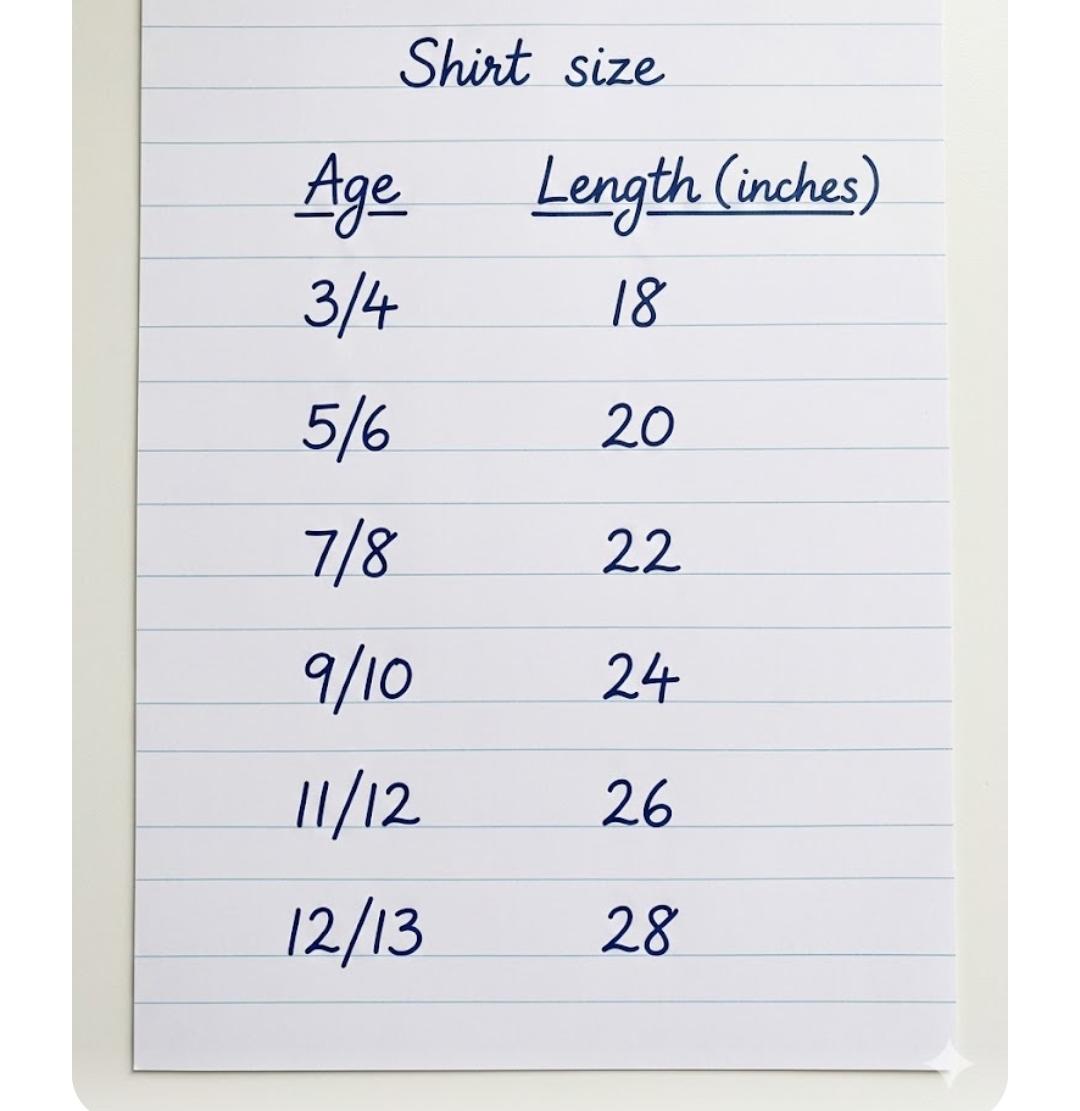 Shirt size
Age Length (inches)
3/4 18
5/6 20
7/8 22
9/10 24
11/12 26
12/13 28